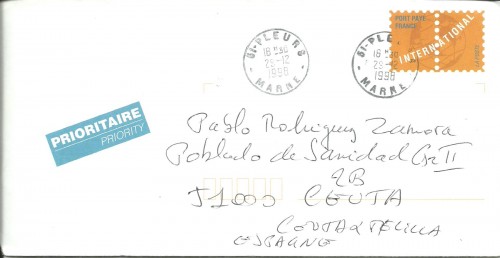 51-PLEURS
18H30
28-12
1998
MARNE
51-PLEURS
18H30
28-12
1998
MARNE
PORT PAYÉ
FRANCE
INTERNATIONAL
PRIORITAIRE
PRIORITY
Pablo Rodriguez Zamora
Poblado de Sanidad Gr. II
2B
51000 CEUTA
CEUTA Y MELILLA
ESPAGNE